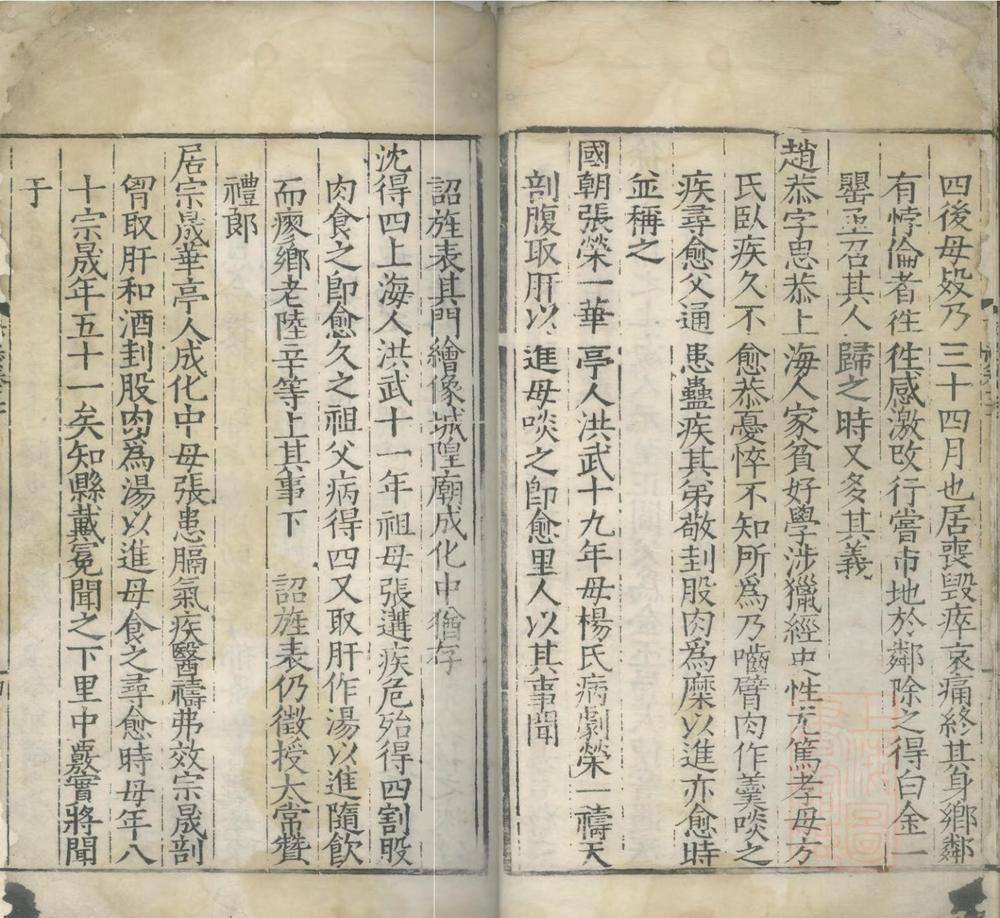 四後母歿乃三十四月也居喪毀瘁哀痛終其身鄉鄰
有悖倫者徃徃感激改行嘗市地於鄰除之得白金一
罌亟召其人歸之時又多其義
趙恭字思恭上海人家貧好學涉獵經史性尤篤孝母方
氏臥疾久不愈恭憂悴不知所爲乃嚙臂肉作羹啖之
疾尋愈父通患蠱疾其弟敬刲股肉爲糜以進亦愈時
並稱之
國朝張榮一華亭人洪武十九年母楊氏病劇榮一禱天
剖腹取肝以進母啖之卽愈里人以其事聞
詔旌表其門繪像城隍廟成化中猶存
沈得四上海人洪武十一年祖母張遘疾危殆得四割股
肉食之卽愈久之祖父病得四又取肝作湯以進隨飲
而瘳鄉老陸辛等上其事下 詔旌表仍徵授太常贊
禮郎
居宗晟華亭人成化中母張患膈氣疾醫禱弗效宗晟剖
胷取肝和酒刲股肉爲湯以進母食之尋愈時母年八
十宗晟年五十一矣知縣戴冕聞之下里中覈實將聞
于